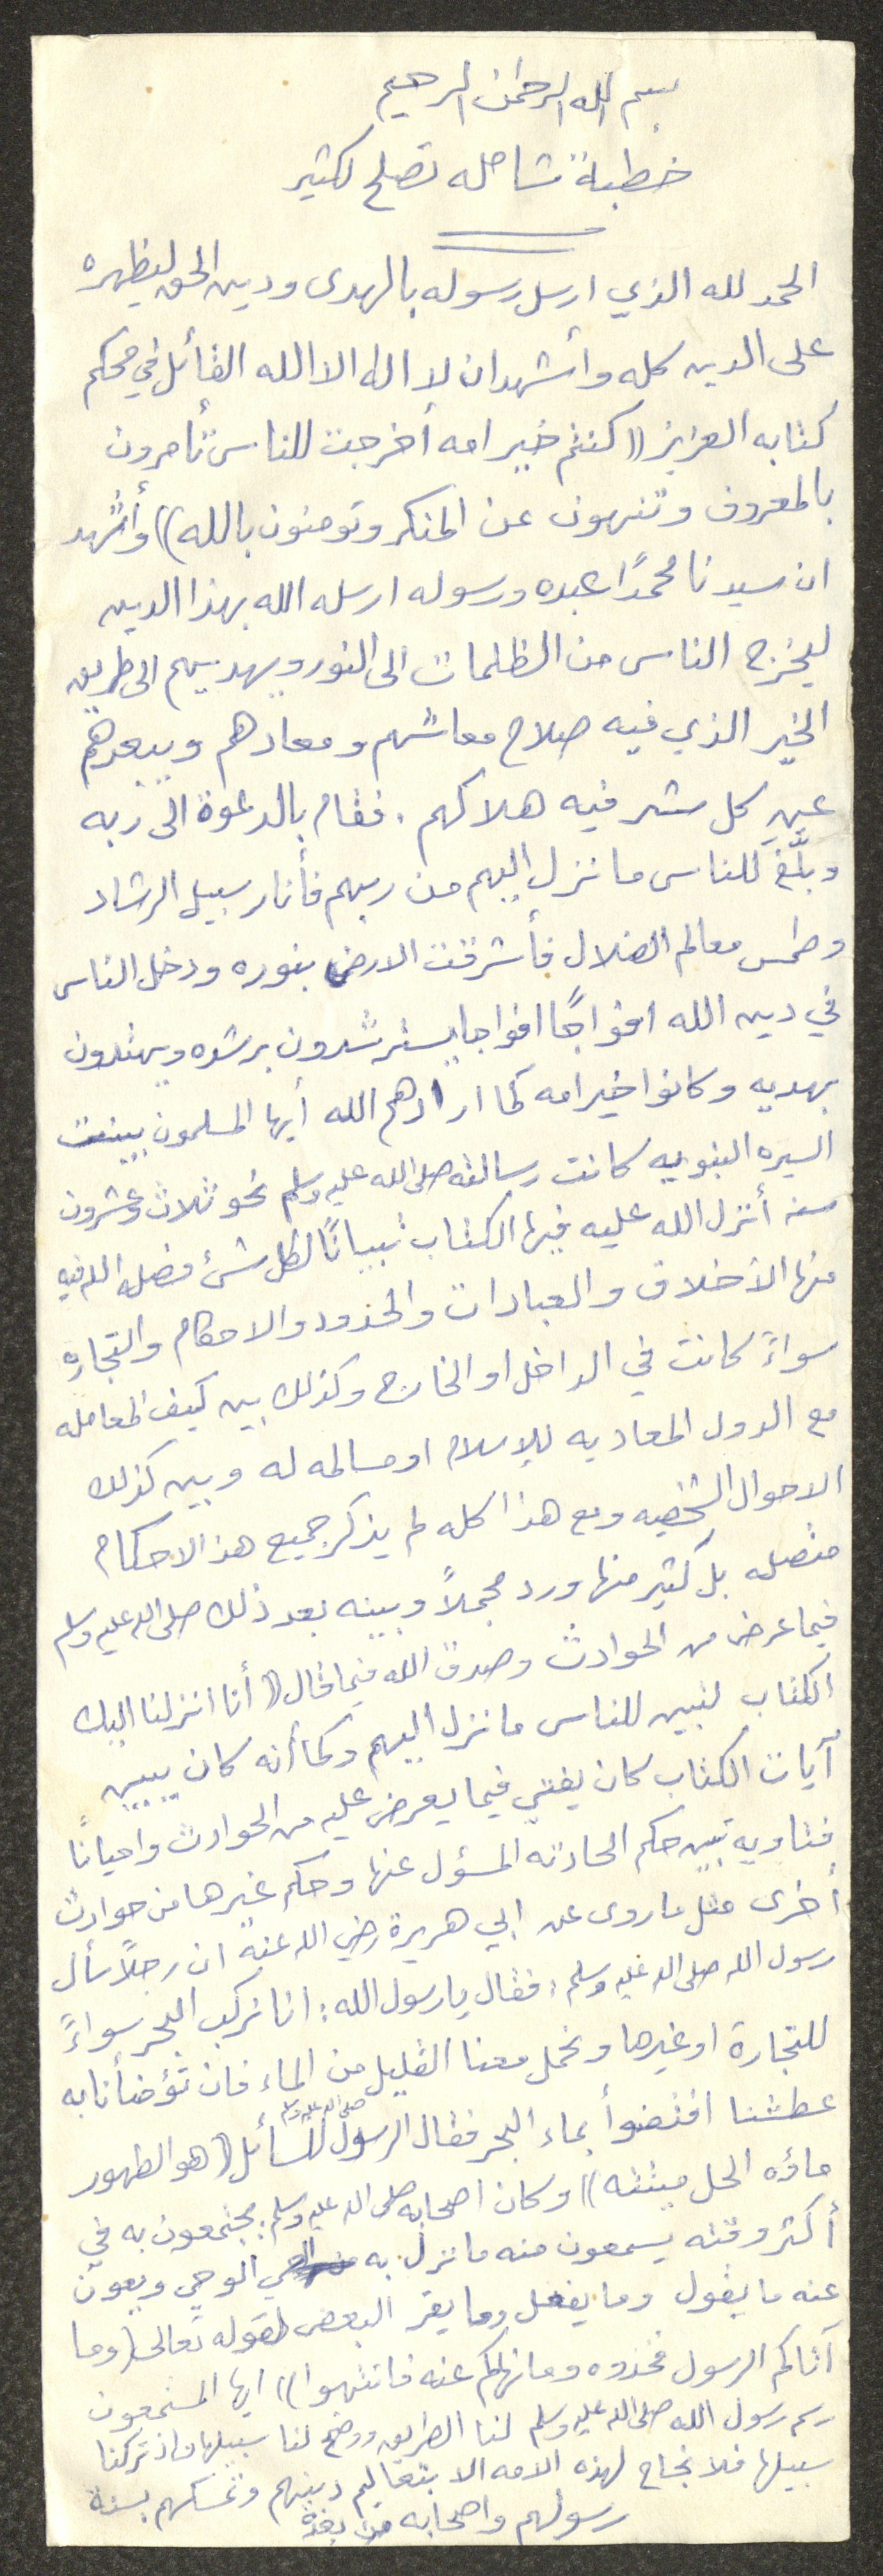 بسم الله الرحمن الرحيم
خطبة شامله تصلح لكثير
الحمد لله الذي ارسل رسوله بالهدى ودين الحق ليظهره
على الدين كله وأشهد ان لا اله الا الله القائل في محكم
كتابه العزيز ((كنتم خير امه أخرجت للناس تأمرون
بالمعروف وتنهون عن المنكر وتومنون بالله)) وأشهد
ان سيدنا محمدًا عبده ورسوله ارسله الله بهذا الدين
ليخرج الناس من الظلمات الى النور ويهديهم الى طريق
الخير الذي فيه صلاح معاشهم ومعادهم ويبعدهم
عن كل شر فيه هلاكهم . فقام بالدعوة الى ربه
وبلَّغ للناس ما نزل اليهم من ربهم فأنار سبيل الرشاد
وطمس معالم الضلال فأشرقت الارض بنوره ودخل الناس
في دين الله افواجًا افواجا يسترشدون برشده ويهتدون
بهديه وكانوا خير امه كما ارادهم الله أيها المسلمون بينت
السيره النبويه كانت رسالته صلى الله عليه وسلم نحو ثلاث وعشرون
سنه أنزل الله عليه فيها الكتاب تبيانًا لكل شئ فصله الله فيه
منها الأخلاق والعبادات والحدود والاحكام والتجاره
سواءً كانت في الداخل او الخارج وكذلك بين كيف المعامله
مع الدول المعاديه للإسلام او مسالمه له وبين كذلك
الاحوال الشخصيه ومع هذا كله لم يذكر جميع هذ الاحكام
مفصله بل كثير منها ورد مجملاً وبينه بعد ذلك صلى الله عليه وسلم
فيما عرض من الحوادث وصدق الله فيما قال ((أنا انزلنا اليك
الكتاب لتبين للناس ما نزل اليهم وكما أنه كان يبين
آيات الكتاب كان يفتي فيما يعرض عليه من الحوادث واحيانًا
فتاويه تبين حكم الحادثه المسؤل عنها وحكم غيرها من حوادث
أخرى مثل ما روى عن ابي هريرة رضي الله عنه ان رجلاً سأل
رسول الله صلى الله عليه وسلم : فقال يا رسول الله : انا نركب البحر سواءً
للتجارة او غيرها ونحمل معنا القليل من الماء فان تؤضأنا به
عطشنا افنتضوأ بماء البحر فقال الرسول صلى الله عليه وسلم للسائل ((هو الطهور
ماؤه الحل ميتته)) وكان اصحابه صلى الله عليه وسلم : يجتمعون به في
أكثر وقته يسمعون منه ما نزل به الوحي ويعون
عنه ما يقول وما يفعل وما يقر البعض لقوله تعالى ((وما
آتاكم الرسول فخذوه وما نهاكم عنه فانتهوا)) ايها المستمعون
رسم رسول الله صلى الله عليه وسلم لنا الطريق ووضح لنا سبيلها فاذ تركنا
سبيلها فلا نجاح لهذه الامه الا بتعاليم دينهم وتمسكهم بسنة
رسولهم واصحابه من بعده